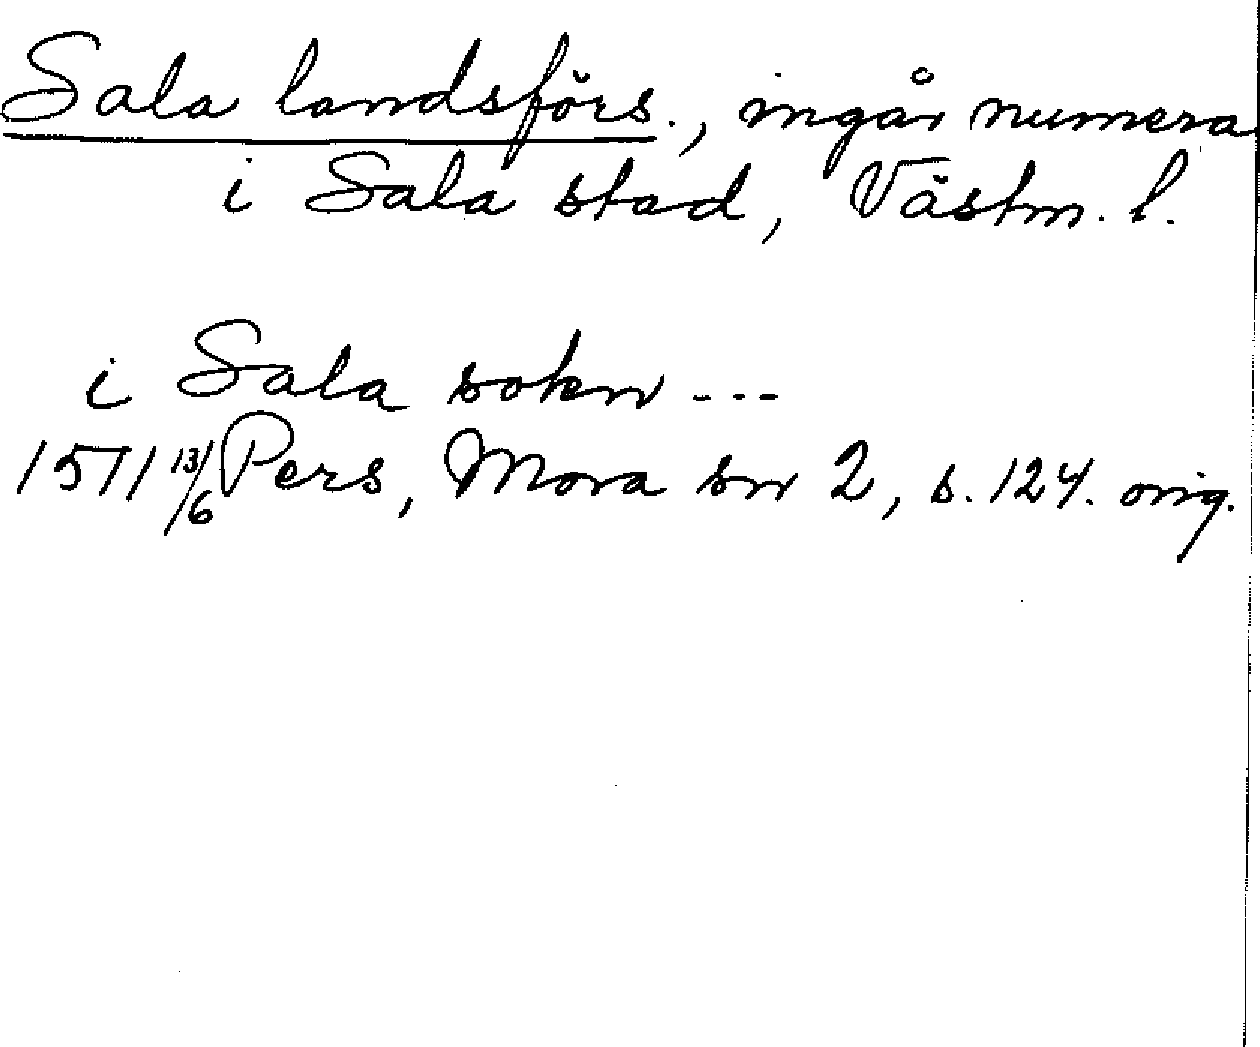 Sala landsförs., ingår numera
i Sala stad, Västm. l.
i Sala sokn ---
1511 13/6 Pers, Mora sn 2, s. 124. orig.